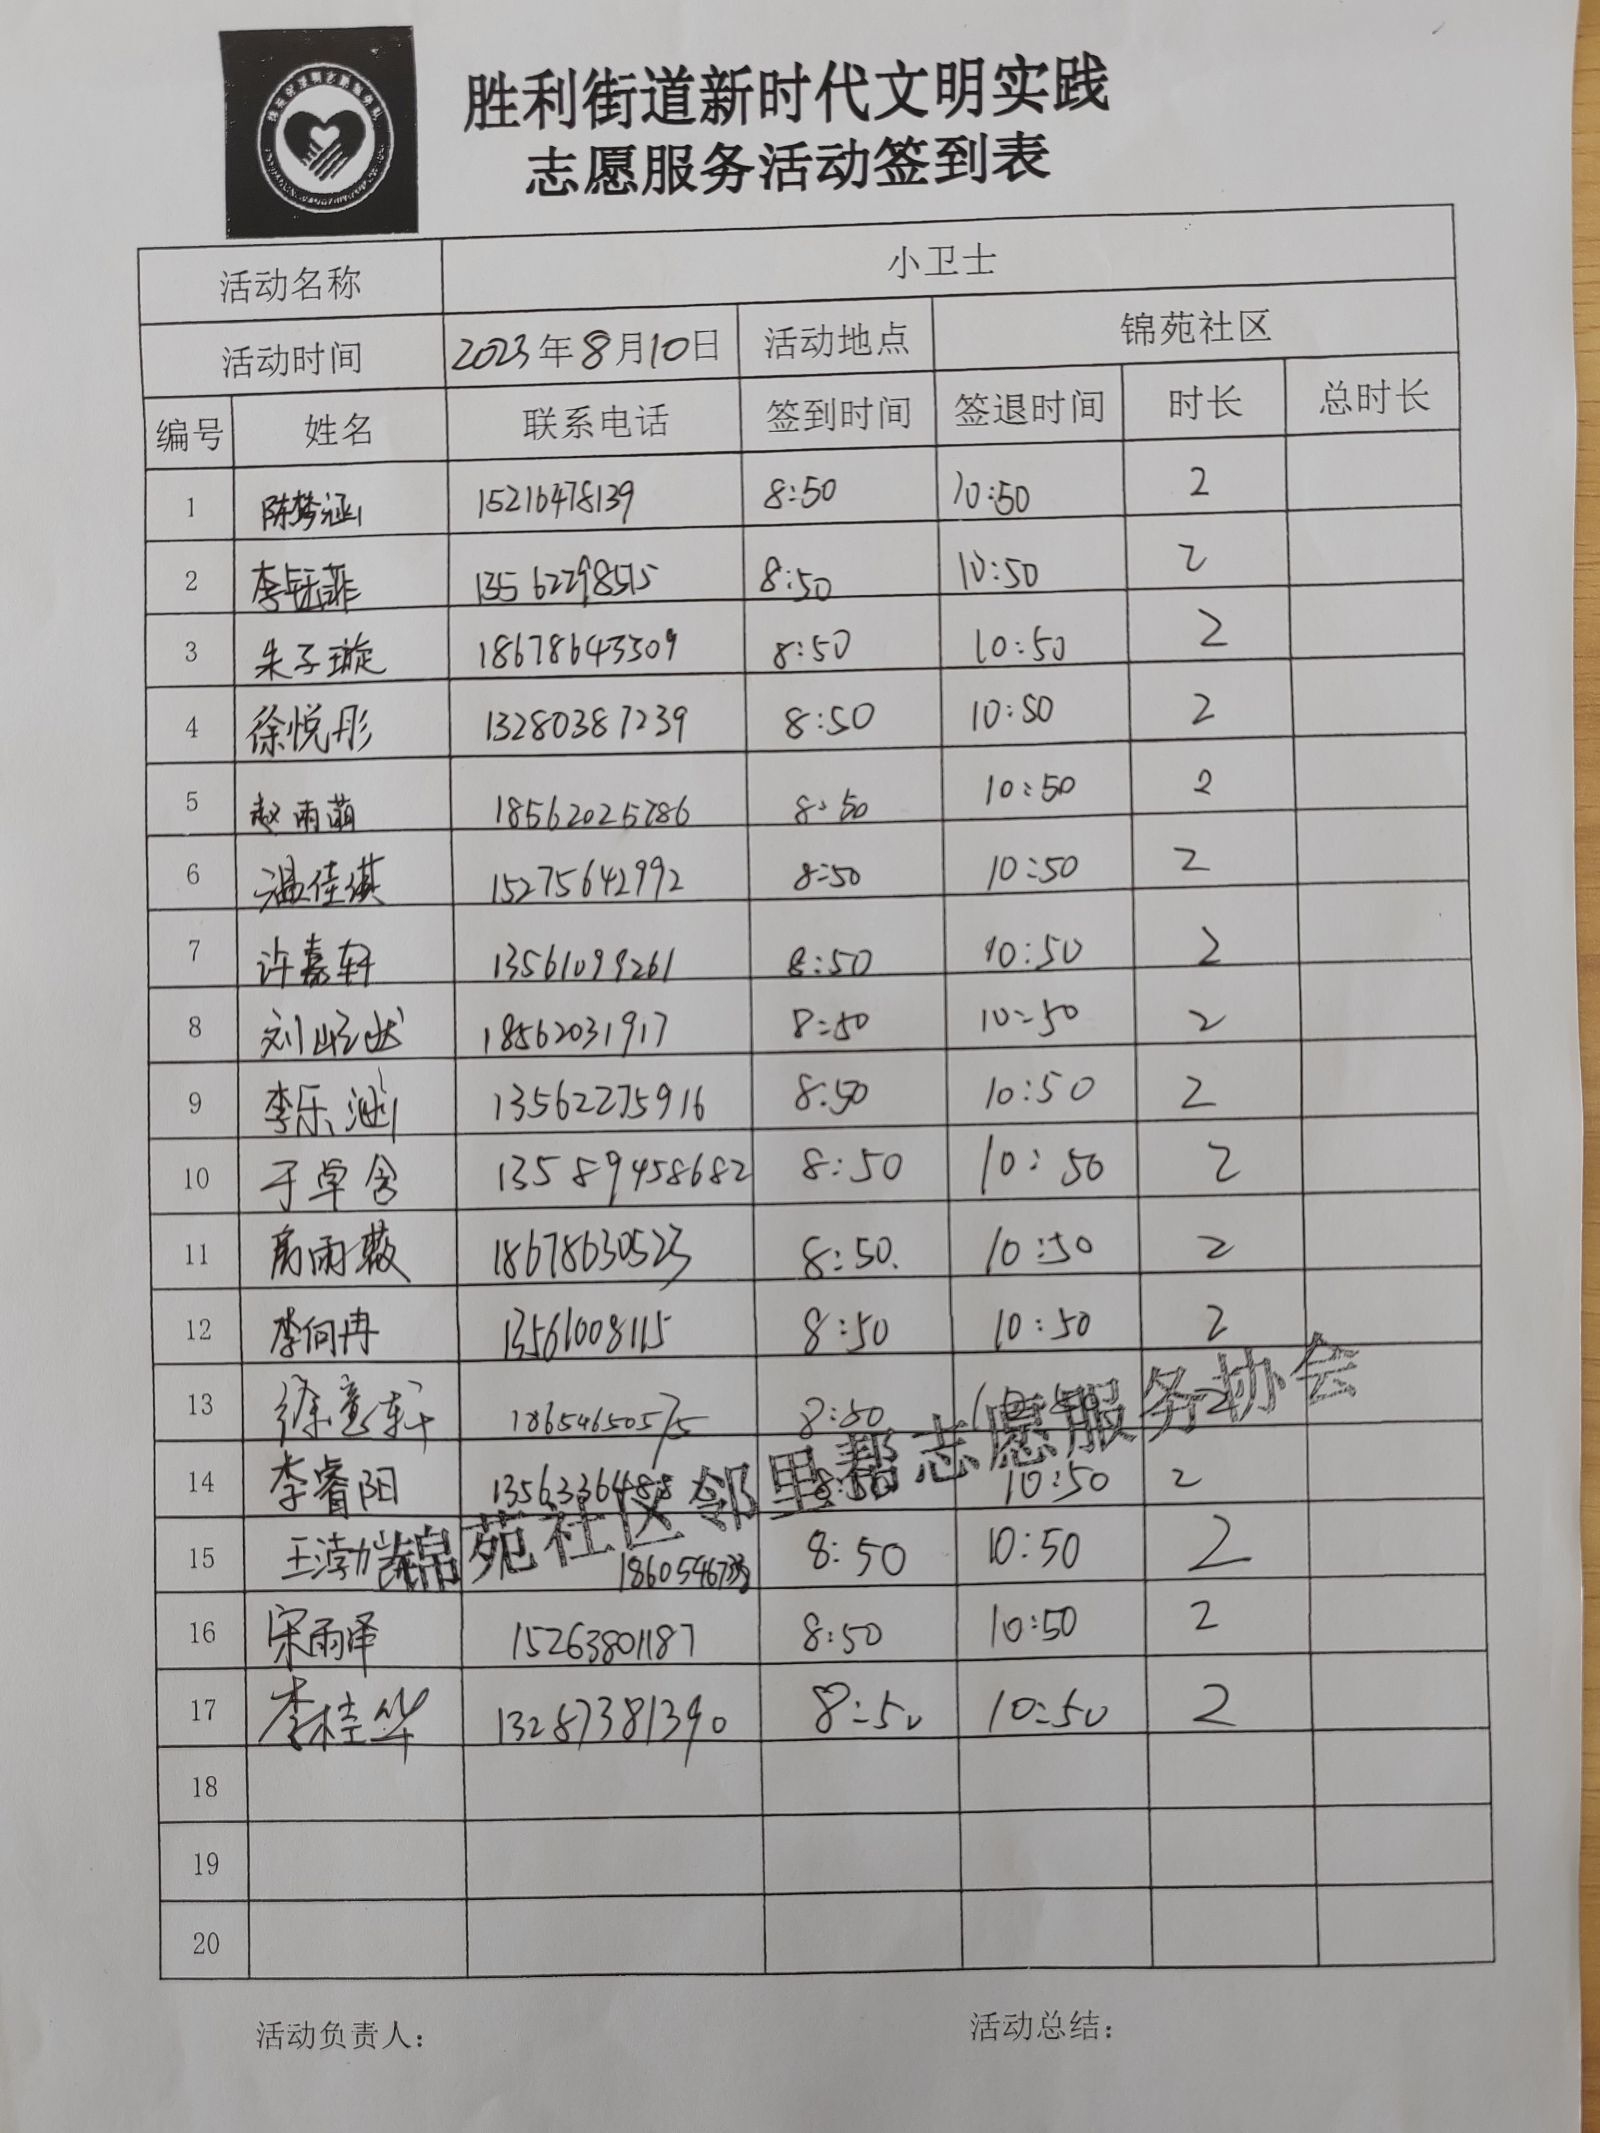 胜利街道新时代文明实践
志愿服务活动签到表
活动名称 小卫士
活动时间 2023年8月10日 活动地点 锦苑社区
编号 姓名 联系电话 签到时间 签退时间 时长 总时长
1 陈梦涵 15216478139 8:50 10:50 2
2 李钰菲 13562298515 8:50 10:50 2
3 朱子璇 18678643309 8:50 10:50 2
4 徐悦彤 13280387239 8:50 10:50 2
5 赵雨萌 18562025786 8:50 10:50 2
6 温佳琪 15275642992 8:50 10:50 2
7 许嘉轩 13561099261 8:50 10:50 2
8 刘屹然 18562031917 8:50 10:50 2
9 李乐涵 13562275916 8:50 10:50 2
10 于卓含 13589458682 8:50 10:50 2
11 房雨薇 18678630523 8:50. 10:50 2
12 李何冉 13561008115 8:50 10:50 2
13 徐意轩 18654650575 8:50 10:50 2
14 李睿阳 8:50 10:50 2
15 王渤 8:50 10:50 2
锦苑社区邻里帮志愿服务协会
16 宋雨泽 15263801187 8:50 10:50 2
17 李桂华 13287381390 8:50 10:50 2
18
19
20
活动负责人: 活动总结: